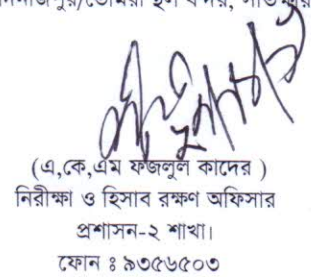 (এ,কে,এম ফজলুল কাদের )
নিরীক্ষা ও হিসাব রক্ষণ অফিসার
প্রশাসন-২ শাখা।
ফোন ঃ ৯৩৫৬৫০৩